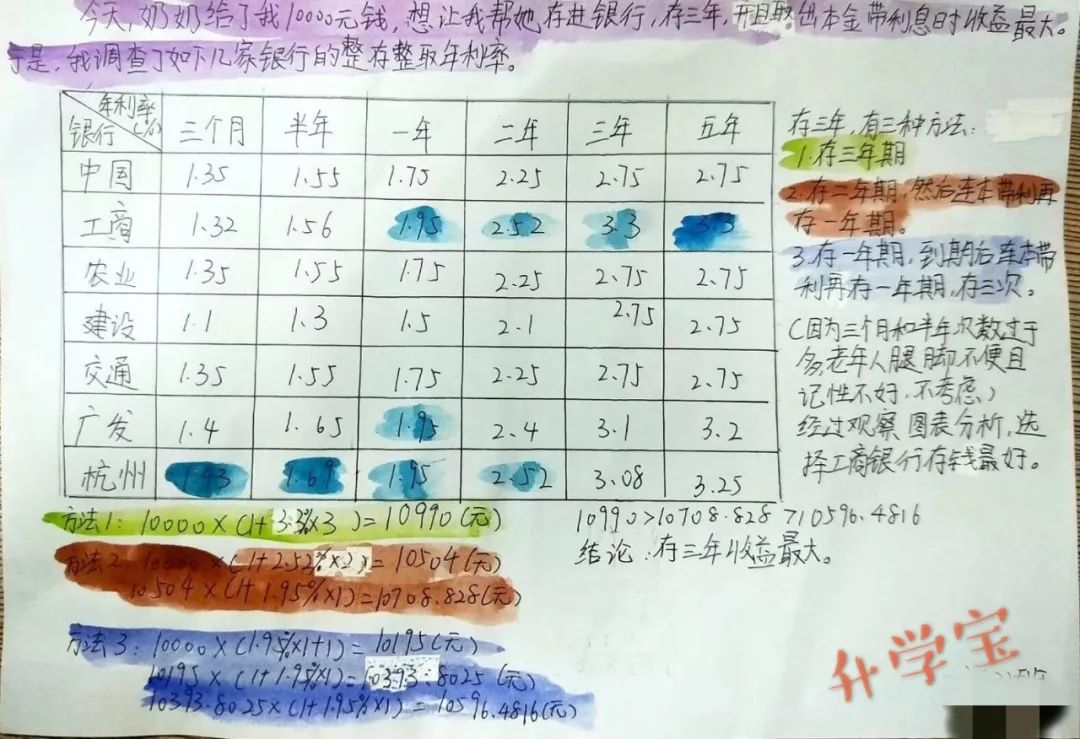 今天,奶奶给了我10000元钱,想让我帮她存进银行,存三年,并且取出本金带利息时收益最大。
于是,我调查了如下几家银行的整存整取年利率。
年利率(%) 银行 三个月 半年 一年 二年 三年 五年
中国 1.35 1.55 1.75 2.25 2.75 2.75
工商 1.32 1.56 1.95 2.52 3.3 3.3
农业 1.35 1.55 1.75 2.25 2.75 2.75
建设 1.1 1.3 1.5 2.1 2.75 2.75
交通 1.35 1.55 1.75 2.25 2.75 2.75
广发 1.4 1.65 1.95 2.4 3.1 3.2
杭州 1.43 1.69 1.95 2.52 3.08 3.25
存三年,有三种方法:
1.存三年期
2.存二年期,然后连本带利再
存一年期。
3.存一年期,到期后连本带
利再存一年期,存三次。
(因为三个月和半年次数过于
多,老年人腿脚不便且
记性不好,不考虑)
经过观察,图表分析,选
择工商银行存钱最好。
方法1:10000×(1+3.3%×3)=10990(元)
方法2:10000×(1+2.52%×2)=10504(元)
10504×(1+1.95%×1)=10708.828(元)
方法3:10000×(1.95%×1+1)=10195(元)
10195×(1+1.95%×1)=10393.8025(元)
10393.8025×(1+1.95%×1)=10596.4816(元)
10990>10708.828>10596.4816
结论:存三年收益最大。
升学宝